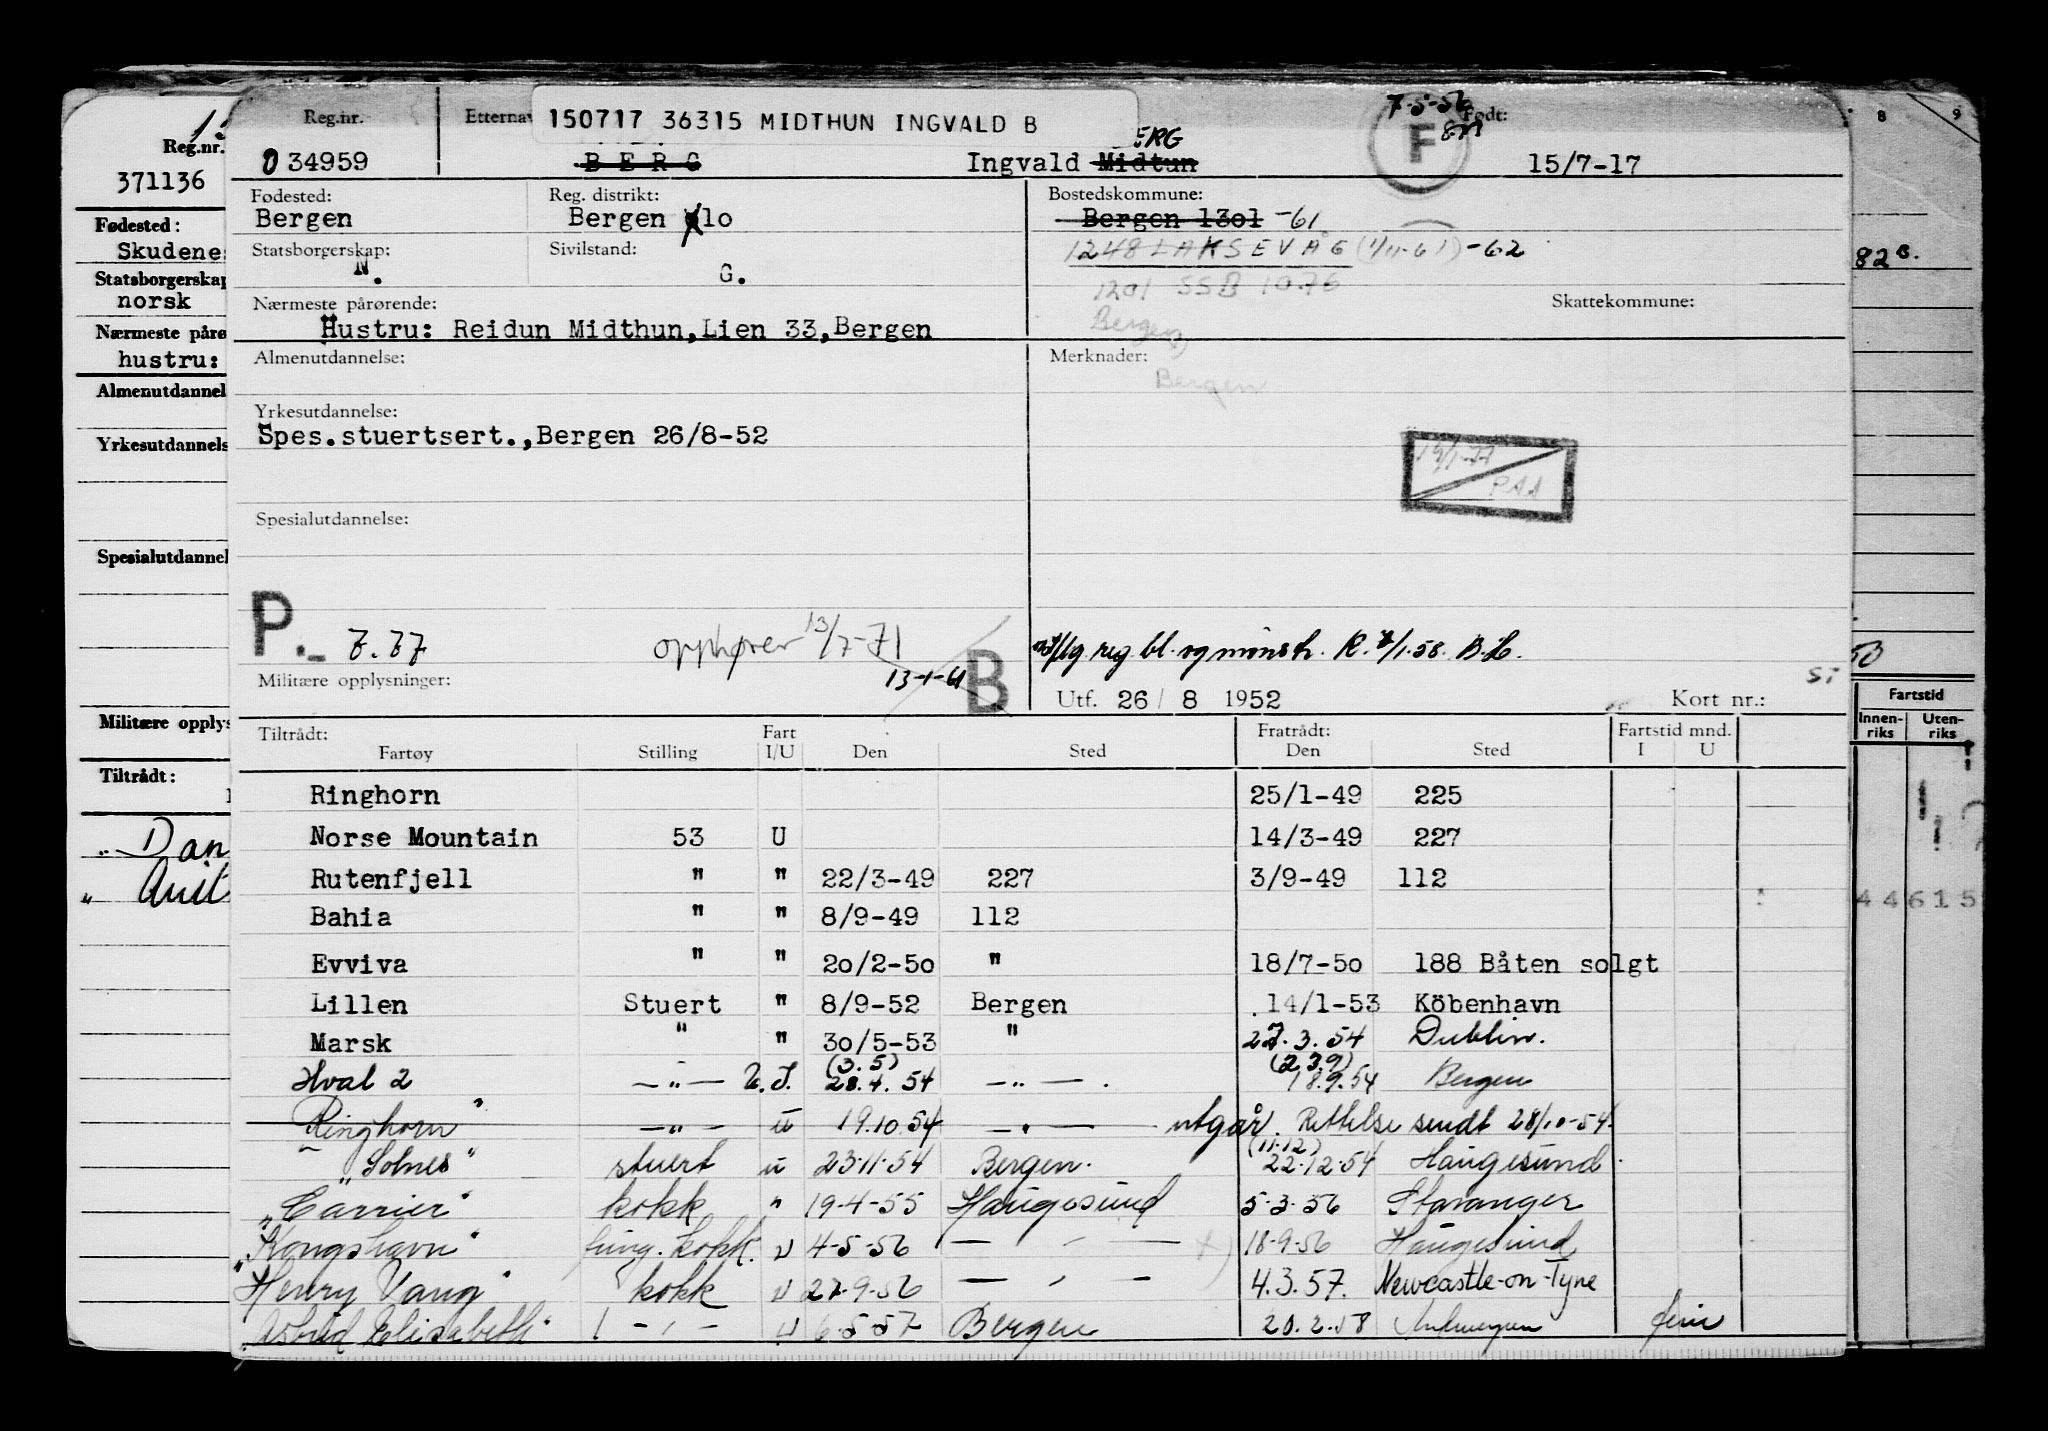 Reg.nr. Etternav 150717 36315 MIDTHUN INGVALD B Født:
7-5-56
F
O 34959 BERG Ingvald Midtun BERG 15/7-17
Fødested: Reg. distrikt: Bostedskommune:
Bergen Bergen lo Bergen 13o1 -61
Statsborgerskap: Sivilstand: 1248 LAKSEVÅG (1/11-61) -62
N. G. 1201 SSB 10.76
Nærmeste pårørende: Bergen Skattekommune:
Hustru: Reidun Midthun, Lien 33, Bergen
Almenutdannelse: Merknader:
Bergen
Yrkesutdannelse:
Spes.stuertsert., Bergen 26/8-52
PAA
Spesialutdannelse:
P. 7.77 opphører 13/7-71 reg bl. og mønsth. R. 1.58.
13-1-61 B
Militære opplysninger: Utf. 26 / 8 1952 Kort nr.:
Tiltrådt: Fart Fratrådt: Fartstid mnd.
Fartøy Stilling I/U Den Sted Den Sted I U
Ringhorn 25/1-49 225
Norse Mountain 53 U 14/3-49 227
Rutenfjell " " 22/3-49 227 3/9-49 112
Bahia " " 8/9-49 112
Evviva " " 2o/2-5o " 18/7-5o 188 Båten solgt
Lillen Stuert " 8/9-52 Bergen 14/1-53 Köbenhavn
Marsk " " 3o/5-53 " 27.3.54 Dublin.
(3.5) (23.9)
Hval 2 -"- U.I. 28.4.54 -"- 18.9.54 Bergen
Ringhorn" -"- u 19.10.54 -"- utgår. Rettelse sendt 28/10-54.
(11.12)
"Solnes" stuert u 23.11.54 Bergen. 22.12.54 Haugesund.
"Carrier" kokk " 19-4-55 Haugesund 5.3.56 Stavanger
"Kongshavn" fung. kokk. u 4-5-56 — " — x) 18-9-56 Haugesund
"Henry Vang" kokk u 27-9-56 — " — 4.3.57. Newcastle-on-Tyne
"Astrid Elisabeth" - " - u 6-5-57 Bergen 20.2.58 Antwerpen
Reg.nr.
371136
Fødested:
Skudene
Statsborgerskap
norsk
Nærmeste pårø
hustru:
Almenutdannel
Yrkesutdannels
Spesialutdannel
Militære opplys
Tiltrådt:
" Dan
" Anit
8 9
82
Fartstid
Innen-riks Uten-riks
44615